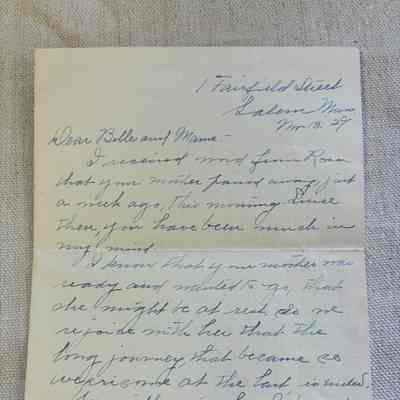 1 Fairfield Street
Salem Mass
Nov 13. 29
Dear Belle and Mame -
I received word from Rosa
that your mother passed away, just
a week ago, this morning Since
then, you have been much in
my mind.
I know that your mother was
ready and wanted to go, that
she might be at rest so we
rejoice with her that the
long journey that became so
wearisome at the last is ended.